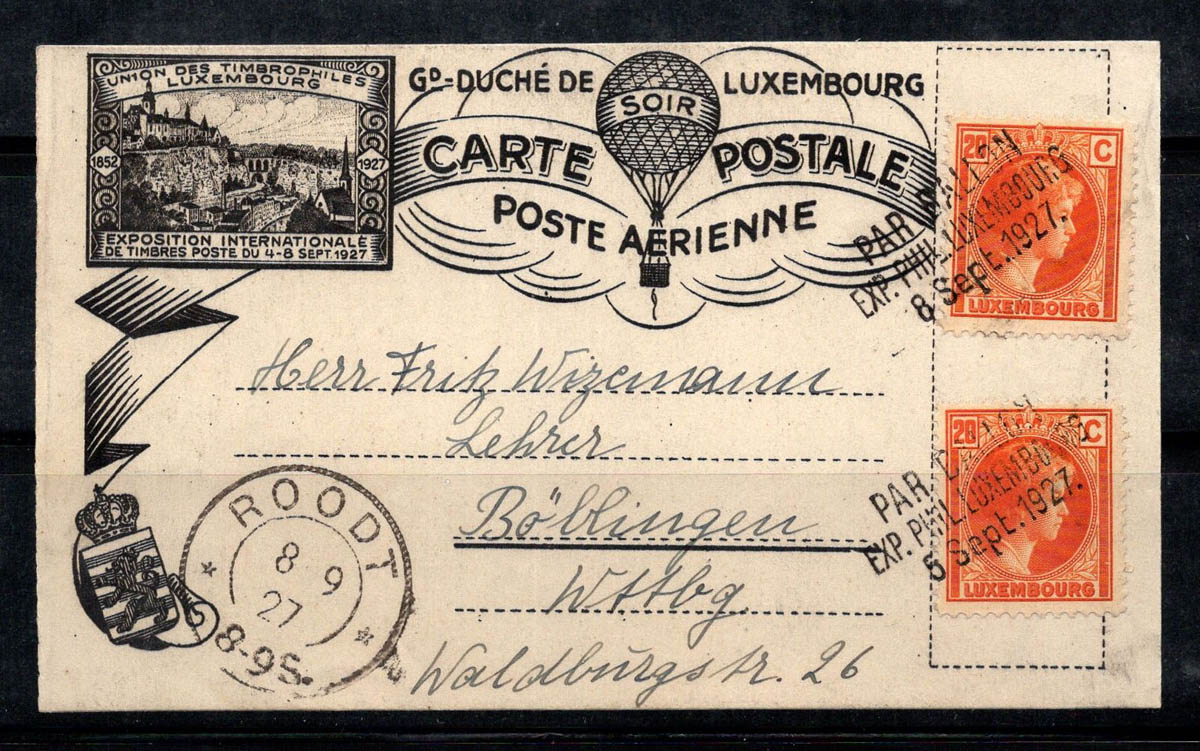 UNION DES TIMBROPHILES
LUXEMBOURG
1852
1927
EXPOSITION INTERNATIONALE
DE TIMBRES POSTE DU 4-8 SEPT. 1927
GD-DUCHÉ DE LUXEMBOURG
SOIR
CARTE POSTALE
POSTE AERIENNE
20 C
LUXEMBOURG
PAR BALLON
EXP. PHIL. LUXEMBOURG
8 Sept. 1927.
20 C
LUXEMBOURG
PAR
EXP. PHIL. LUXEMBOURG
Sept. 1927.
Herr Fritz Wizemann
Lehrer
Böblingen
Wttbg.
Waldburgstr. 26
ROODT
8 9
27
8-9S.